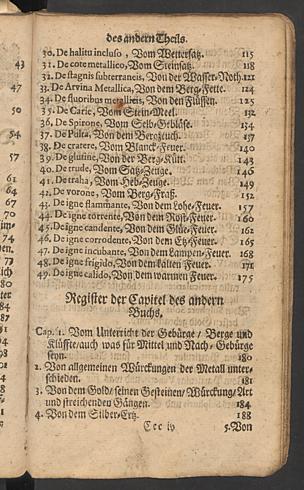 des andern Theils.
30. De halitu incluso, Vom Wettersatz. 115
31. De cote metallico, Vom Steinsatz. 118
32. De stagnis subterraneis, Von der Wasser-Noth. 121
33. De Arvina Metallica, Von dem Berg-Fette. 124
34. De fluoribus metallicis, Von den Flüssen. 125
35. De Carie, Vom Stein-Meel. 132
36. De Spirone, Vom Selb-Gebläse. 134
37. De Von dem Bergtuch. 137
38. De cratere, Vom Blanck-Feuer. 140
39. De glutine, Von der Berg-Kütt. 143
40. De rude, Vom Satz-Zeuge. 146
41. De traha, Vom Heb-Zeuge. 149
42. De vorone, Vom Berg-Fraß. 152
43. De igne flammante, Von dem Lohe-Feuer. 157
44. De igne torrente, Von dem Röst-Feuer. 160
45. De igne candente, Von dem Glüe-Feuer. 162
46. De igne corrodente, Von dem Etz-Feuer. 165
47. De igne incubante, Von dem Lampen-Feuer. 168
48. De igne frigido, Von dem kalten Feuer. 171
49. De igne calido, Von dem warmen Feuer. 175
Register der Capitel des andern
Buchs.
Cap. 1. Vom Unterricht der Gebürge/ Berge und
Klüffte/ auch was für Mittel und Nach-Gebürge
seyn. 180
2. Von allgemeinen Würckungen der Metall unter-
schieden. 181
3. Von dem Gold/ seinen Gesteinen/ Würckung/ Art
und streichenden Gängen. 184
4. Von dem Silber-Ertz. 188
Ccc iv
5. Von
43
47
50
54
57
61
64
67
70
74
80